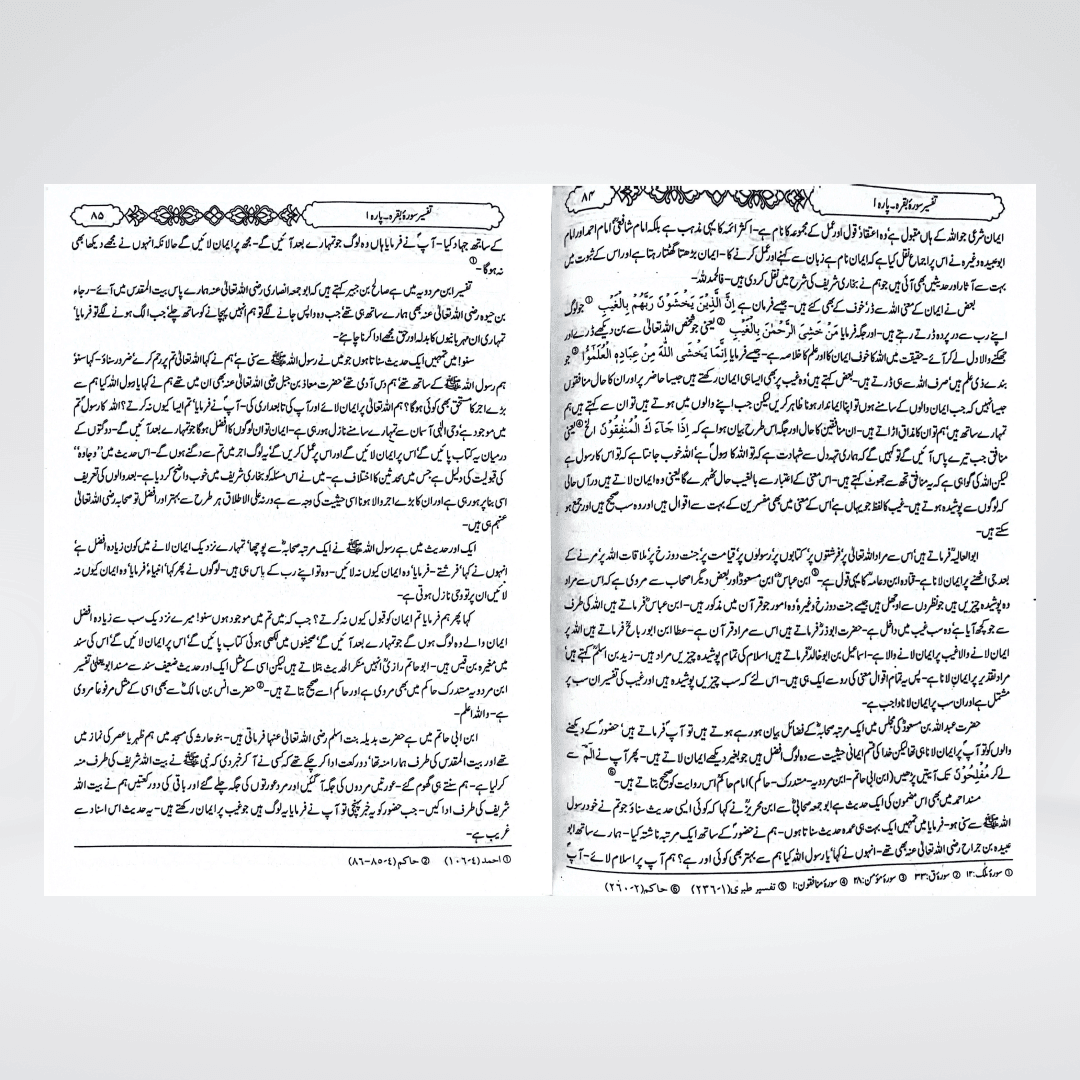 ۸۴
تفسیر سورۂ بقرہ۔ پارہ ۱
ایمان شرعی جو اللہ کے ہاں مقبول ہے وہ اعتقاد قول اور عمل کے مجموعہ کا نام ہے۔ اکثر ائمہ کا یہی مذہب ہے بلکہ امام شافعیؒ امام احمد اور امام
ابوعبیدہ وغیرہ نے اس پر اجماع نقل کیا ہے کہ ایمان نام ہے زبان سے کہنے اور عمل کرنے کا۔ ایمان بڑھتا گھٹتا رہتا ہے اور اس کے ثبوت میں
بہت سے آثار اور حدیثیں بھی آئی ہیں جو ہم نے بخاری شریف کی شرح میں نقل کر دی ہیں۔ فالحمدللہ۔
بعض نے ایمان کے معنی اللہ سے ڈر خوف کے بھی کئے ہیں۔ جیسے فرمان ہے اِنَّ الَّذِیْنَ یَخْشَوْنَ رَبَّهُمْ بِالْغَیْبِ ① جو لوگ
اپنے رب سے در پردہ ڈرتے رہتے ہیں۔ اور جگہ فرمایا مَنْ خَشِیَ الرَّحْمٰنَ بِالْغَیْبِ ② یعنی جو شخص اللہ تعالیٰ سے بن دیکھے ڈرے اور
جھکنے والا دل لے کر آئے۔ حقیقت میں اللہ کا خوف ایمان کا اور علم کا خلاصہ ہے۔ جیسے فرمایا اِنَّمَا یَخْشَی اللّٰهَ مِنْ عِبَادِهِ الْعُلَمٰٓؤُا ③ جو
بندے ذی علم ہیں صرف اللہ سے ہی ڈرتے ہیں۔ بعض کہتے ہیں وہ غیب پر بھی ایسا ہی ایمان رکھتے ہیں جیسا حاضر پر اور ان کا حال منافقوں
جیسا نہیں کہ جب ایمان والوں کے سامنے ہوں تو اپنا ایماندار ہونا ظاہر کریں لیکن جب اپنے والوں میں ہوتے ہیں تو ان سے کہتے ہیں ہم
تمہارے ساتھ ہیں ہم تو ان کا مذاق اڑاتے ہیں۔ ان منافقین کا حال اور جگہ اس طرح بیان ہوا ہے کہ اِذَا جَآءَكَ الْمُنٰفِقُوْنَ الخ ④ یعنی
منافق جب تیرے پاس آئیں گے تو کہیں گے کہ ہماری تہہ دل سے شہادت ہے کہ تو اللہ کا رسول ہے اللہ خوب جانتا ہے کہ تو اس کا رسول ہے
لیکن اللہ کی گواہی ہے کہ یہ منافق تجھ سے جھوٹ کہتے ہیں۔ اس معنی کے اعتبار سے بالغیب حال ٹھہرے گا یعنی وہ ایمان لاتے ہیں درآں حالی
کہ لوگوں سے پوشیدہ ہوتے ہیں۔ غیب کا لفظ جو یہاں ہے اس کے معنی میں بھی مفسرین کے بہت سے اقوال ہیں اور وہ سب صحیح ہیں اور جمع ہو
سکتے ہیں۔
ابوالعالیہؒ فرماتے ہیں اس سے مراد اللہ تعالیٰ پر فرشتوں پر کتابوں پر رسولوں پر قیامت پر جنت دوزخ پر ملاقات اللہ پر مرنے کے
بعد جی اٹھنے پر ایمان لانا ہے۔ قتادہ ابن دعامہؒ کا یہی قول ہے۔⑤ ابن عباسؓ ابن مسعودؓ اور بعض دیگر اصحاب سے مروی ہے کہ اس سے مراد
وہ پوشیدہ چیزیں ہیں جو نظروں سے اوجھل ہیں جیسے جنت دوزخ وغیرہ وہ امور جو قرآن میں مذکور ہیں۔ ابن عباسؓ فرماتے ہیں اللہ کی طرف
سے جو کچھ آیا ہے وہ سب غیب میں داخل ہے۔ حضرت ابوذرؓ فرماتے ہیں اس سے مراد قرآن ہے۔ عطا ابن ابورباحؒ فرماتے ہیں اللہ پر
ایمان لانے والا غیب پر ایمان لانے والا ہے۔ اسماعیل بن ابوخالدؒ فرماتے ہیں اسلام کی تمام پوشیدہ چیزیں مراد ہیں۔ زید بن اسلمؒ کہتے ہیں
مراد تقدیر پر ایمان لانا ہے۔ پس یہ تمام اقوال معنی کی رو سے ایک ہی ہیں۔ اس لئے کہ سب چیزیں پوشیدہ ہیں اور غیب کی تفسیر ان سب پر
مشتمل ہے اور ان سب پر ایمان لانا واجب ہے۔
حضرت عبداللہ بن مسعودؓ کی مجلس میں ایک مرتبہ صحابہؓ کے فضائل بیان ہو رہے ہوتے ہیں تو آپ فرماتے ہیں حضورؐ کے دیکھنے
والوں کو تو آپؐ پر ایمان لانا ہی تھا لیکن خدا کی قسم ایمانی حیثیت سے وہ لوگ افضل ہیں جو بغیر دیکھے ایمان لاتے ہیں۔ پھر آپ نے الٓمّٓ سے
لے کر مُفْلِحُوْنَ تک آیتیں پڑھیں (ابن ابی حاتم۔ ابن مردویہ۔ مستدرک۔ حاکم) امام حاکمؒ اس روایت کو صحیح بتاتے ہیں۔⑥
مسند احمد میں بھی اس مضمون کی ایک حدیث ہے ابو جمعہ صحابیؓ سے ابن محریزؒ نے کہا کہ کوئی ایسی حدیث سناؤ جو تم نے خود رسول
اللہ ﷺ سے سنی ہو۔ فرمایا میں تمہیں ایک بہت ہی عمدہ حدیث سناتا ہوں۔ ہم نے حضورؐ کے ساتھ ایک مرتبہ ناشتہ کیا۔ ہمارے ساتھ ابو
عبیدہ بن جراح رضی اللہ تعالیٰ عنہ بھی تھے۔ انہوں نے کہا یا رسول اللہ کیا ہم سے بہتر بھی کوئی اور ہے؟ ہم آپؐ پر اسلام لائے۔ آپؐ
① سورۂ ملک:۱۲ ② سورۂ ق:۳۳ ③ سورۂ مؤمن:۲۸ ④ سورۂ منافقون:۱ ⑤ تفسیر طبری (۱-۲۳۶) ⑥ حاکم (۲-۲۶۰)
تفسیر سورۂ بقرہ۔ پارہ ۱
۸۵
کے ساتھ جہاد کیا۔ آپؐ نے فرمایا ہاں وہ لوگ جو تمہارے بعد آئیں گے۔ مجھ پر ایمان لائیں گے حالانکہ انہوں نے مجھے دیکھا بھی
نہ ہوگا۔①
تفسیر ابن مردویہ میں ہے صالح بن جبیر کہتے ہیں کہ ابو جمعہ انصاری رضی اللہ تعالیٰ عنہ ہمارے پاس بیت المقدس میں آئے۔ رجاء
بن حیوہ رضی اللہ تعالیٰ عنہ بھی ہمارے ساتھ ہی تھے جب وہ واپس جانے لگے تو ہم انہیں پہچانے کو ساتھ چلے جب الگ ہونے لگے تو فرمایا
تمہاری ان مہربانیوں کا بدلہ اور حق مجھے ادا کرنا چاہئے۔
سنو! میں تمہیں ایک حدیث سناتا ہوں جو میں نے رسول اللہ ﷺ سے سنی ہے ہم نے کہا اللہ تعالیٰ تم پر رحم کرے ضرور سناؤ۔ کہا سنو
ہم رسول اللہ ﷺ کے ساتھ تھے ہم دس آدمی تھے حضرت معاذ بن جبل رضی اللہ تعالیٰ عنہ بھی ان میں تھے ہم نے کہا یا رسول اللہ کیا ہم سے
بڑے اجر کا مستحق بھی کوئی ہوگا؟ ہم اللہ تعالیٰ پر ایمان لائے اور آپ کی تابعداری کی۔ آپؐ نے فرمایا تم ایسا کیوں نہ کرتے؟ اللہ کا رسول تم
میں موجود ہے وحی الٰہی آسمان سے تمہارے سامنے نازل ہو رہی ہے۔ ایمان تو ان لوگوں کا افضل ہوگا جو تمہارے بعد آئیں گے۔ دو گتوں کے
درمیان یہ کتاب پائیں گے اس پر ایمان لائیں گے اور اس پر عمل کریں گے یہ لوگ اجر میں تم سے دگنے ہوں گے۔ اس حدیث میں ’’وجادہ‘‘
کی قبولیت کی دلیل ہے جس میں محدثین کا اختلاف ہے۔ میں نے اس مسئلہ کو بخاری شریف میں خوب واضح کر دیا ہے۔ بعد والوں کی تعریف
اسی بنا پر ہو رہی ہے اور ان کا بڑے اجر والا ہونا اسی حیثیت کی وجہ سے ہے ورنہ علی الاطلاق ہر طرح سے بہتر اور افضل تو صحابہ رضی اللہ تعالیٰ
عنہم ہی ہیں۔
ایک اور حدیث میں ہے رسول اللہ ﷺ نے ایک مرتبہ صحابہؓ سے پوچھا تمہارے نزدیک ایمان لانے میں کون زیادہ افضل ہے
انہوں نے کہا فرشتے۔ فرمایا وہ ایمان کیوں نہ لائیں۔ وہ تو اپنے رب کے پاس ہی ہیں۔ لوگوں نے پھر کہا انبیاء فرمایا وہ ایمان کیوں نہ
لائیں ان پر تو وحی نازل ہوتی ہے۔
کہا پھر ہم فرمایا تم ایمان کو قبول کیوں نہ کرتے؟ جب کہ میں تم میں موجود ہوں سنو! میرے نزدیک سب سے زیادہ افضل
ایمان والے وہ لوگ ہوں گے جو تمہارے بعد آئیں گے صحیفوں میں لکھی ہوئی کتاب پائیں گے اس پر ایمان لائیں گے اس کی سند
میں مغیرہ بن قیس ہیں۔ ابوحاتم رازیؒ انہیں منکر الحدیث بتلاتے ہیں لیکن اسی کے مثل ایک اور حدیث ضعیف سند سے مسند ابویعلیٰ تفسیر
ابن مردویہ مستدرک حاکم میں بھی مروی ہے اور حاکم اسے صحیح بتاتے ہیں۔② حضرت انس بن مالکؓ سے بھی اسی کے مثل مرفوعاً مروی
ہے۔ واللہ اعلم۔
ابن ابی حاتم میں ہے حضرت بدیلہ بنت اسلم رضی اللہ تعالیٰ عنہا فرماتی ہیں۔ بنو حارثہ کی مسجد میں ہم ظہر یا عصر کی نماز میں
تھے اور بیت المقدس کی طرف ہمارا منہ تھا دو رکعت ادا کر چکے تھے کہ کسی نے آ کر خبر دی کہ نبی ﷺ نے بیت اللہ شریف کی طرف منہ
کر لیا ہے۔ ہم سنتے ہی گھوم گئے۔ عورتیں مردوں کی جگہ آ گئیں اور مرد عورتوں کی جگہ چلے گئے اور باقی کی دو رکعتیں ہم نے بیت اللہ
شریف کی طرف ادا کیں۔ جب حضورؐ کو یہ خبر پہنچی تو آپ نے فرمایا یہ لوگ ہیں جو غیب پر ایمان رکھتے ہیں۔ یہ حدیث اس اسناد سے
غریب ہے۔
① احمد (۴-۱۰۶) ② حاکم (۴-۸۵-۸۶)